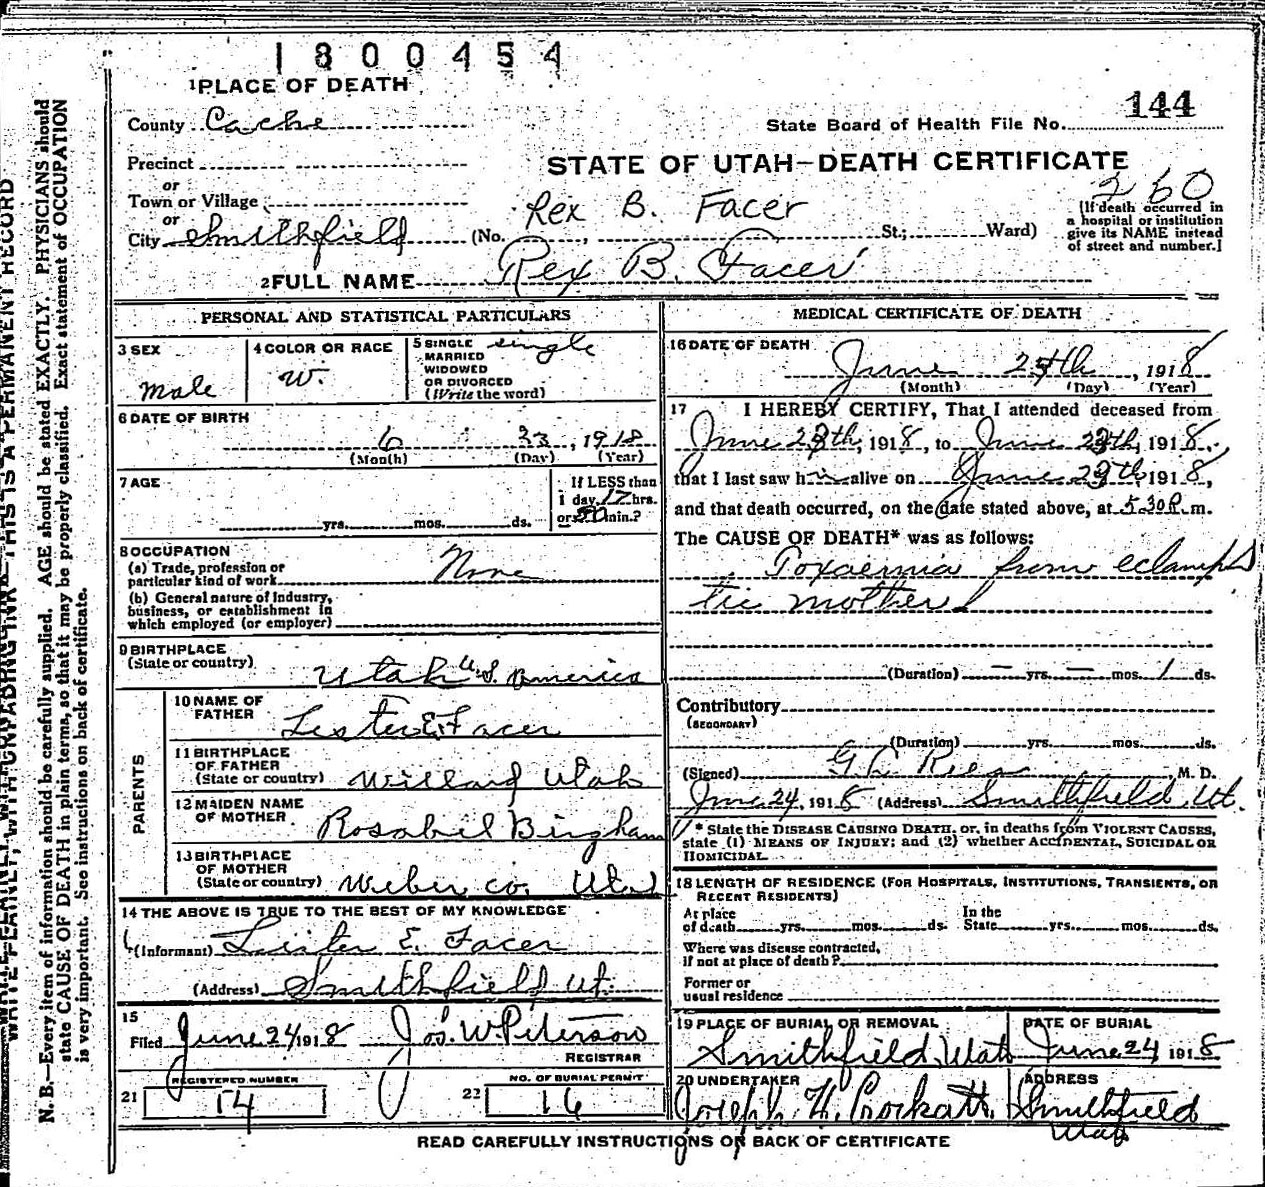 1800454
1 PLACE OF DEATH
144
County Cache
State Board of Health File No.
Precinct
STATE OF UTAH—DEATH CERTIFICATE
or
Town or Village
Rex B. Facer
260
or
City Smithfield (No. , St.; Ward)
(If death occurred in
a hospital or institution
give its NAME instead
of street and number.]
2 FULL NAME Rex B. Facer
PERSONAL AND STATISTICAL PARTICULARS
3 SEX
male
4 COLOR OR RACE
W.
5 SINGLE
MARRIED
WIDOWED
OR DIVORCED
(Write the word)
single
6 DATE OF BIRTH
6 23, 1918
(Month) (Day) (Year)
7 AGE
yrs. mos. ds.
If LESS than
1 day, 17 hrs.
or min.?
8 OCCUPATION
(a) Trade, profession or
particular kind of work None
(b) General nature of Industry,
business, or establishment in
which employed (or employer)
9 BIRTHPLACE
(State or country)
Utah U.S. America
PARENTS
10 NAME OF
FATHER
Lester E. Facer
11 BIRTHPLACE
OF FATHER
(State or country) Willard Utah
12 MAIDEN NAME
OF MOTHER
Rosabel Bingham
13 BIRTHPLACE
OF MOTHER
(State or country) Weber co. Utah
14 THE ABOVE IS TRUE TO THE BEST OF MY KNOWLEDGE
(Informant) Lester E. Facer
(Address) Smithfield Ut.
15
Filed June 24 1918 Jos. W. Peterson
REGISTRAR
21 REGISTERED NUMBER
14
22 NO. OF BURIAL PERMIT
16
MEDICAL CERTIFICATE OF DEATH
16 DATE OF DEATH
June 24th, 1918
(Month) (Day) (Year)
17 I HEREBY CERTIFY, That I attended deceased from
June 23th, 1918, to June 23th, 1918.
that I last saw h alive on June 23th, 1918,
and that death occurred, on the date stated above, at 5 30 P. m.
The CAUSE OF DEATH* was as follows:
Toxaemia from eclamp
tic mother
(Duration) — yrs. — mos. 1 ds.
Contributory
(SECONDARY)
(Duration) yrs. mos. ds.
(Signed) , M. D.
June 24, 1918 (Address) Smithfield Ut.
* State the DISEASE CAUSING DEATH, or, in deaths from VIOLENT CAUSES,
state (1) MEANS OF INJURY; and (2) whether ACCIDENTAL, SUICIDAL OR
HOMICIDAL.
18 LENGTH OF RESIDENCE (FOR HOSPITALS, INSTITUTIONS, TRANSIENTS, OR
RECENT RESIDENTS)
At place
of death yrs. mos. ds.
In the
State yrs. mos. ds.
Where was disease contracted,
If not at place of death?
Former or
usual residence
19 PLACE OF BURIAL OR REMOVAL
Smithfield, Utah
DATE OF BURIAL
June 24 1918
20 UNDERTAKER
Joseph H.
ADDRESS
Smithfield
Utah
READ CAREFULLY INSTRUCTIONS ON BACK OF CERTIFICATE
THIS IS A PERMANENT RECORD
N. B.—Every item of information should be carefully supplied. AGE should be stated EXACTLY. PHYSICIANS should
state CAUSE OF DEATH in plain terms, so that it may be properly classified. Exact statement of OCCUPATION
is very important. See instructions on back of certificate.